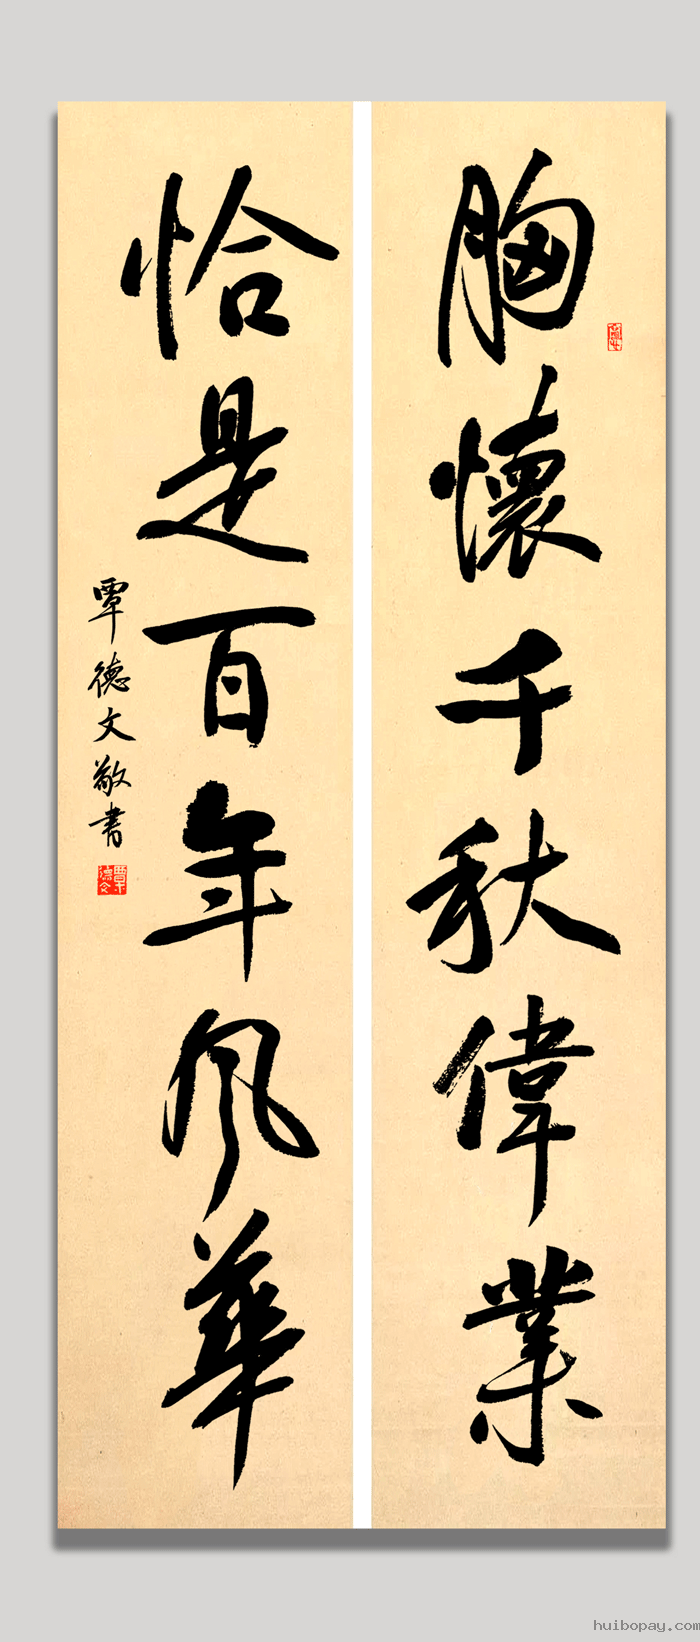 胸懷千秋偉業
恰是百年风華
覃德文敬书
覃德文
huibopay.com